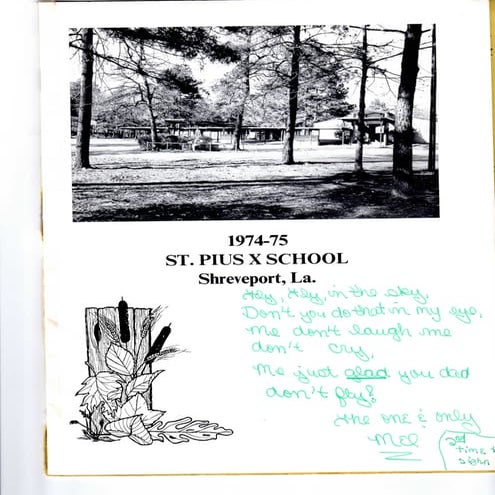 1974-75
ST. PIUS X SCHOOL
Shreveport, La.
Hey, Hey, in the sky,
Don't you do that in my eye,
Me don't laugh me
don't cry,
Me just glad you dad
don't fly!
the one & only
Mel
2nd
time